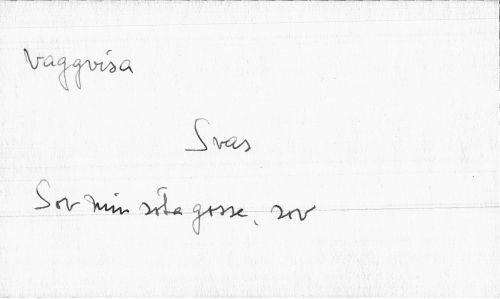 Vaggvisa
Svas
Sov min söta gosse, sov